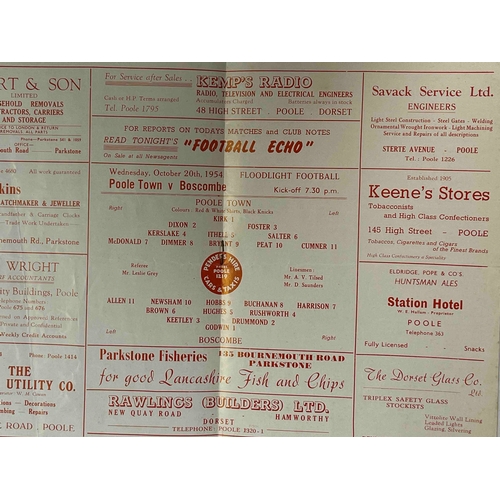 RT & SON
LIMITED
SEHOLD REMOVALS
TRACTORS, CARRIERS
AND STORAGE
OFFICE
outh Road - Parkstone
All work guaranteed
kins
ATCHMAKER & JEWELLER
Grandfather & Carriage Clocks
Trade Work Undertaken
nemouth Rd., Parkstone
WRIGHT
ity Buildings, Poole
Telephone Numbers
Poole 675 & 676
Private and Confidential
Weekly Credit Accounts
Phone: Poole 1414
THE
UTILITY CO.
ations - Decorations
umbing - Repairs
K ROAD, POOLE
For Service after Sales . . .
Cash or H.P. Terms arranged
Tel. Poole 1795
KEMP'S RADIO
RADIO, TELEVISION AND ELECTRICAL ENGINEERS
Accumulators Charged
Batteries always in stock
48 HIGH STREET - POOLE - DORSET
FOR REPORTS ON TODAYS MATCHES and CLUB NOTES
READ TONIGHT'S "FOOTBALL ECHO"
On Sale at all Newsagents
Wednesday, October 20th, 1954
FLOODLIGHT FOOTBALL
Poole Town v Boscombe
Kick-off 7.30 p.m.
POOLE TOWN
Right
Colours: Red & White Shirts, Black Knicks
Left
KIRK 1
DIXON 2
FOSTER 3
KERSLAKE 4
ITHELL 5
SALTER 6
McDONALD 7
DIMMER 8
BRYANT 9
PEAT 10
CUMNER 11
Referee
Mr. Leslie Grey
PENDER'S HIRE
POOLE
1219
CARS & TAXIS
Linesmen:
Mr. A. V. Tilsed
Mr. D. Saunders
ALLEN 11
NEWSHAM 10
HOBBS 9
BUCHANAN 8
HARRISON 7
BROWN 6
HUGHES 5
RUSHWORTH 4
KEETLEY 3
DRUMMOND 2
GODWIN 1
Left
Right
BOSCOMBE
Parkstone Fisheries
235 BOURNEMOUTH ROAD
PARKSTONE
for good Lancashire Fish and Chips
RAWLINGS (BUILDERS) LTD.
NEW QUAY ROAD
HAMWORTHY
DORSET
TELEPHONE: POOLE 1320-1
Savack Service Ltd.
ENGINEERS
Light Steel Construction - Steel Gates - Welding
Ornamental Wrought Ironwork - Light Machining
Service and Repairs of all descriptions.
STERTE AVENUE - POOLE
Tel.: Poole 1226
Established 1905
Keene's Stores
Tobacconists
and High Class Confectioners
145 High Street - POOLE
Tobaccos, Cigarettes and Cigars
of the Finest Brands
High Class Confectionery
ELDRIDGE, POPE & CO'S
HUNTSMAN ALES
Station Hotel
W. E. Hallam - Proprietor
POOLE
Telephone 363
Fully Licensed
Snacks
The Dorset Glass Co.
Ltd.
TRIPLEX SAFETY GLASS
STOCKISTS
Vitrolite Wall Lining
Leaded Lights
Glazing, Silvering